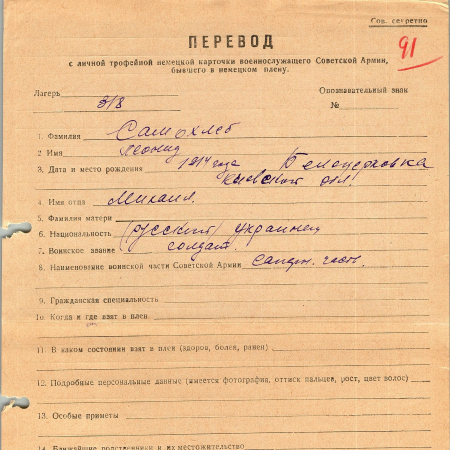 Сов. секретно
91
ПЕРЕВОД
с личной трофейной немецкой карточки военнослужащего Советской Армии,
бывшего в немецком плену.
Лагерь 318
Опознавательный знак
№
1. Фамилия Самохлеб
2. Имя Леонид
3. Дата и место рождения 1914 года Белопольовка
Киевской обл.
4. Имя отца Михаил.
5. Фамилия матери
6. Национальность (русский) украинец
7. Воинское звание солдат.
8. Наименование воинской части Советской Армии санитн. часть.
9. Гражданская специальность
10. Когда и где взят в плен
11. В каком состоянии взят в плен (здоров, болен, ранен)
12. Подробные персональные данные (имеется фотография, оттиск пальцев, рост, цвет волос)
13. Особые приметы
14. Ближайшие родственники и их местожительство